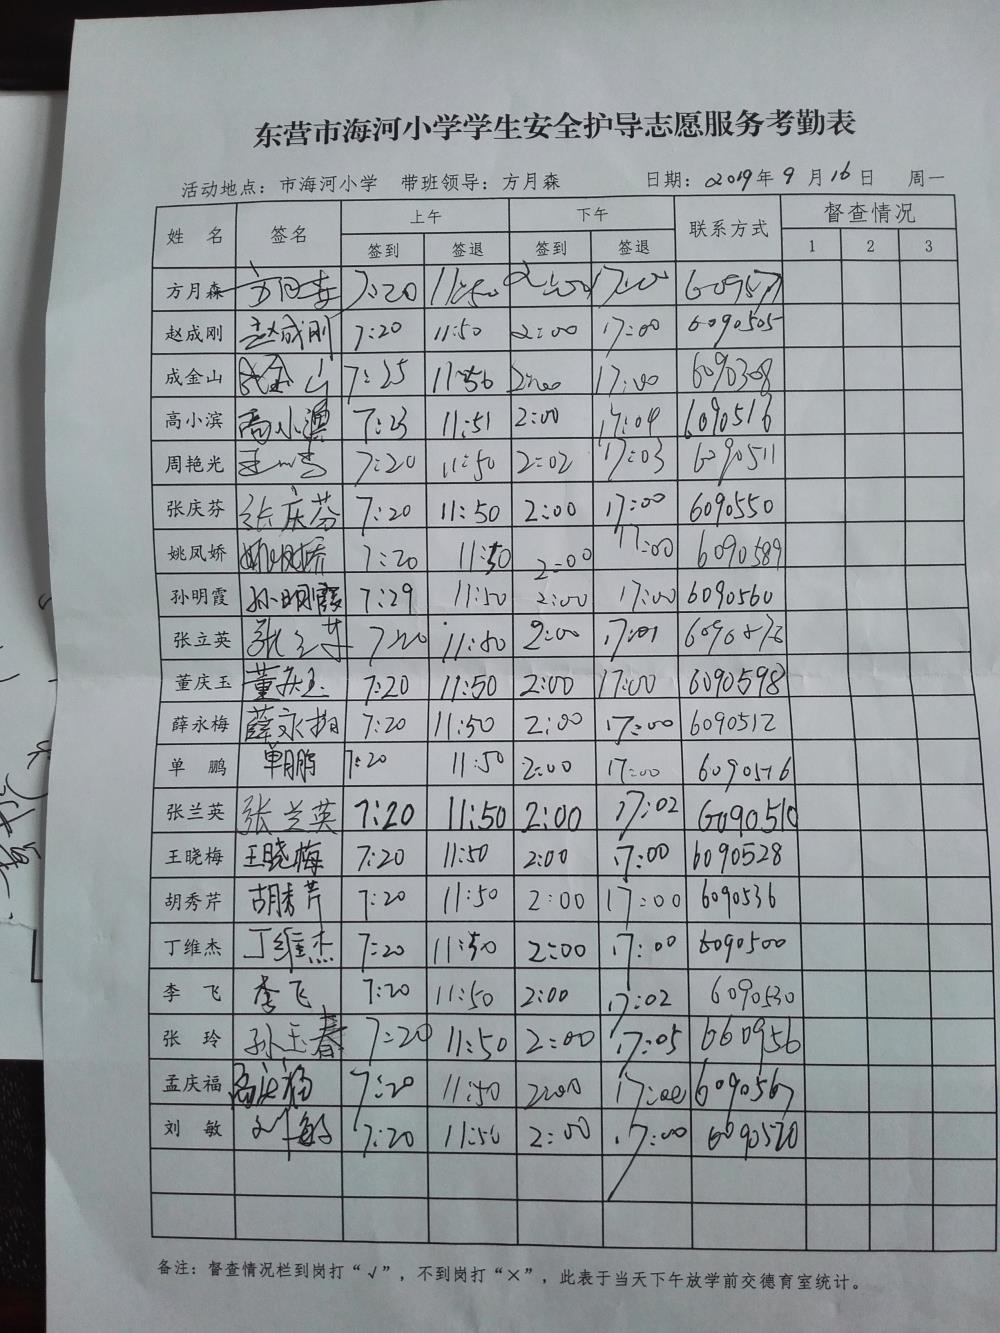 东营市海河小学学生安全护导志愿服务考勤表
活动地点：市海河小学 带班领导：方月森 日期：2019年9月16日 周一
姓 名 签名 上午 下午 联系方式 督查情况
签到 签退 签到 签退 1 2 3
方月森 7:20 11:50 2:00 17:00
赵成刚 赵成刚 7:20 11:50 2:00 17:00 6090505
成金山 成金山 7:25 11:56 2:00 17:00 6090308
高小滨 高小滨 7:23 11:51 2:00 17:04 6090516
周艳光 7:20 11:50 2:02 17:03 6090511
张庆芬 张庆芬 7:20 11:50 2:00 17:00 6090550
姚凤娇 姚凤娇 7:20 11:50 2:00 17:00 6090589
孙明霞 孙明霞 7:29 11:50 2:00 17:00 6090560
张立英 7:20 11:50 2:00 17:01
董庆玉 董庆玉 7:20 11:50 2:00 17:00 6090598
薛永梅 薛永梅 7:20 11:50 2:00 17:00 6090512
单 鹏 单鹏 7:20 11:50 2:00 17:00 6090576
张兰英 张兰英 7:20 11:50 2:00 17:02 6090510
王晓梅 王晓梅 7:20 11:50 2:00 17:00 6090528
胡秀芹 胡秀芹 7:20 11:50 2:00 17:00 6090536
丁维杰 丁维杰 7:20 11:50 2:00 17:00 6090500
李 飞 李飞 7:20 11:50 2:00 17:02 6090530
张 玲 孙玉春 7:20 11:50 2:00 17:05 660956
孟庆福 7:20 11:50 2:00 17:00 6090567
刘 敏 刘敏 7:20 11:50 2:00 17:00 6090520
备注：督查情况栏到岗打“√”，不到岗打“×”，此表于当天下午放学前交德育室统计。